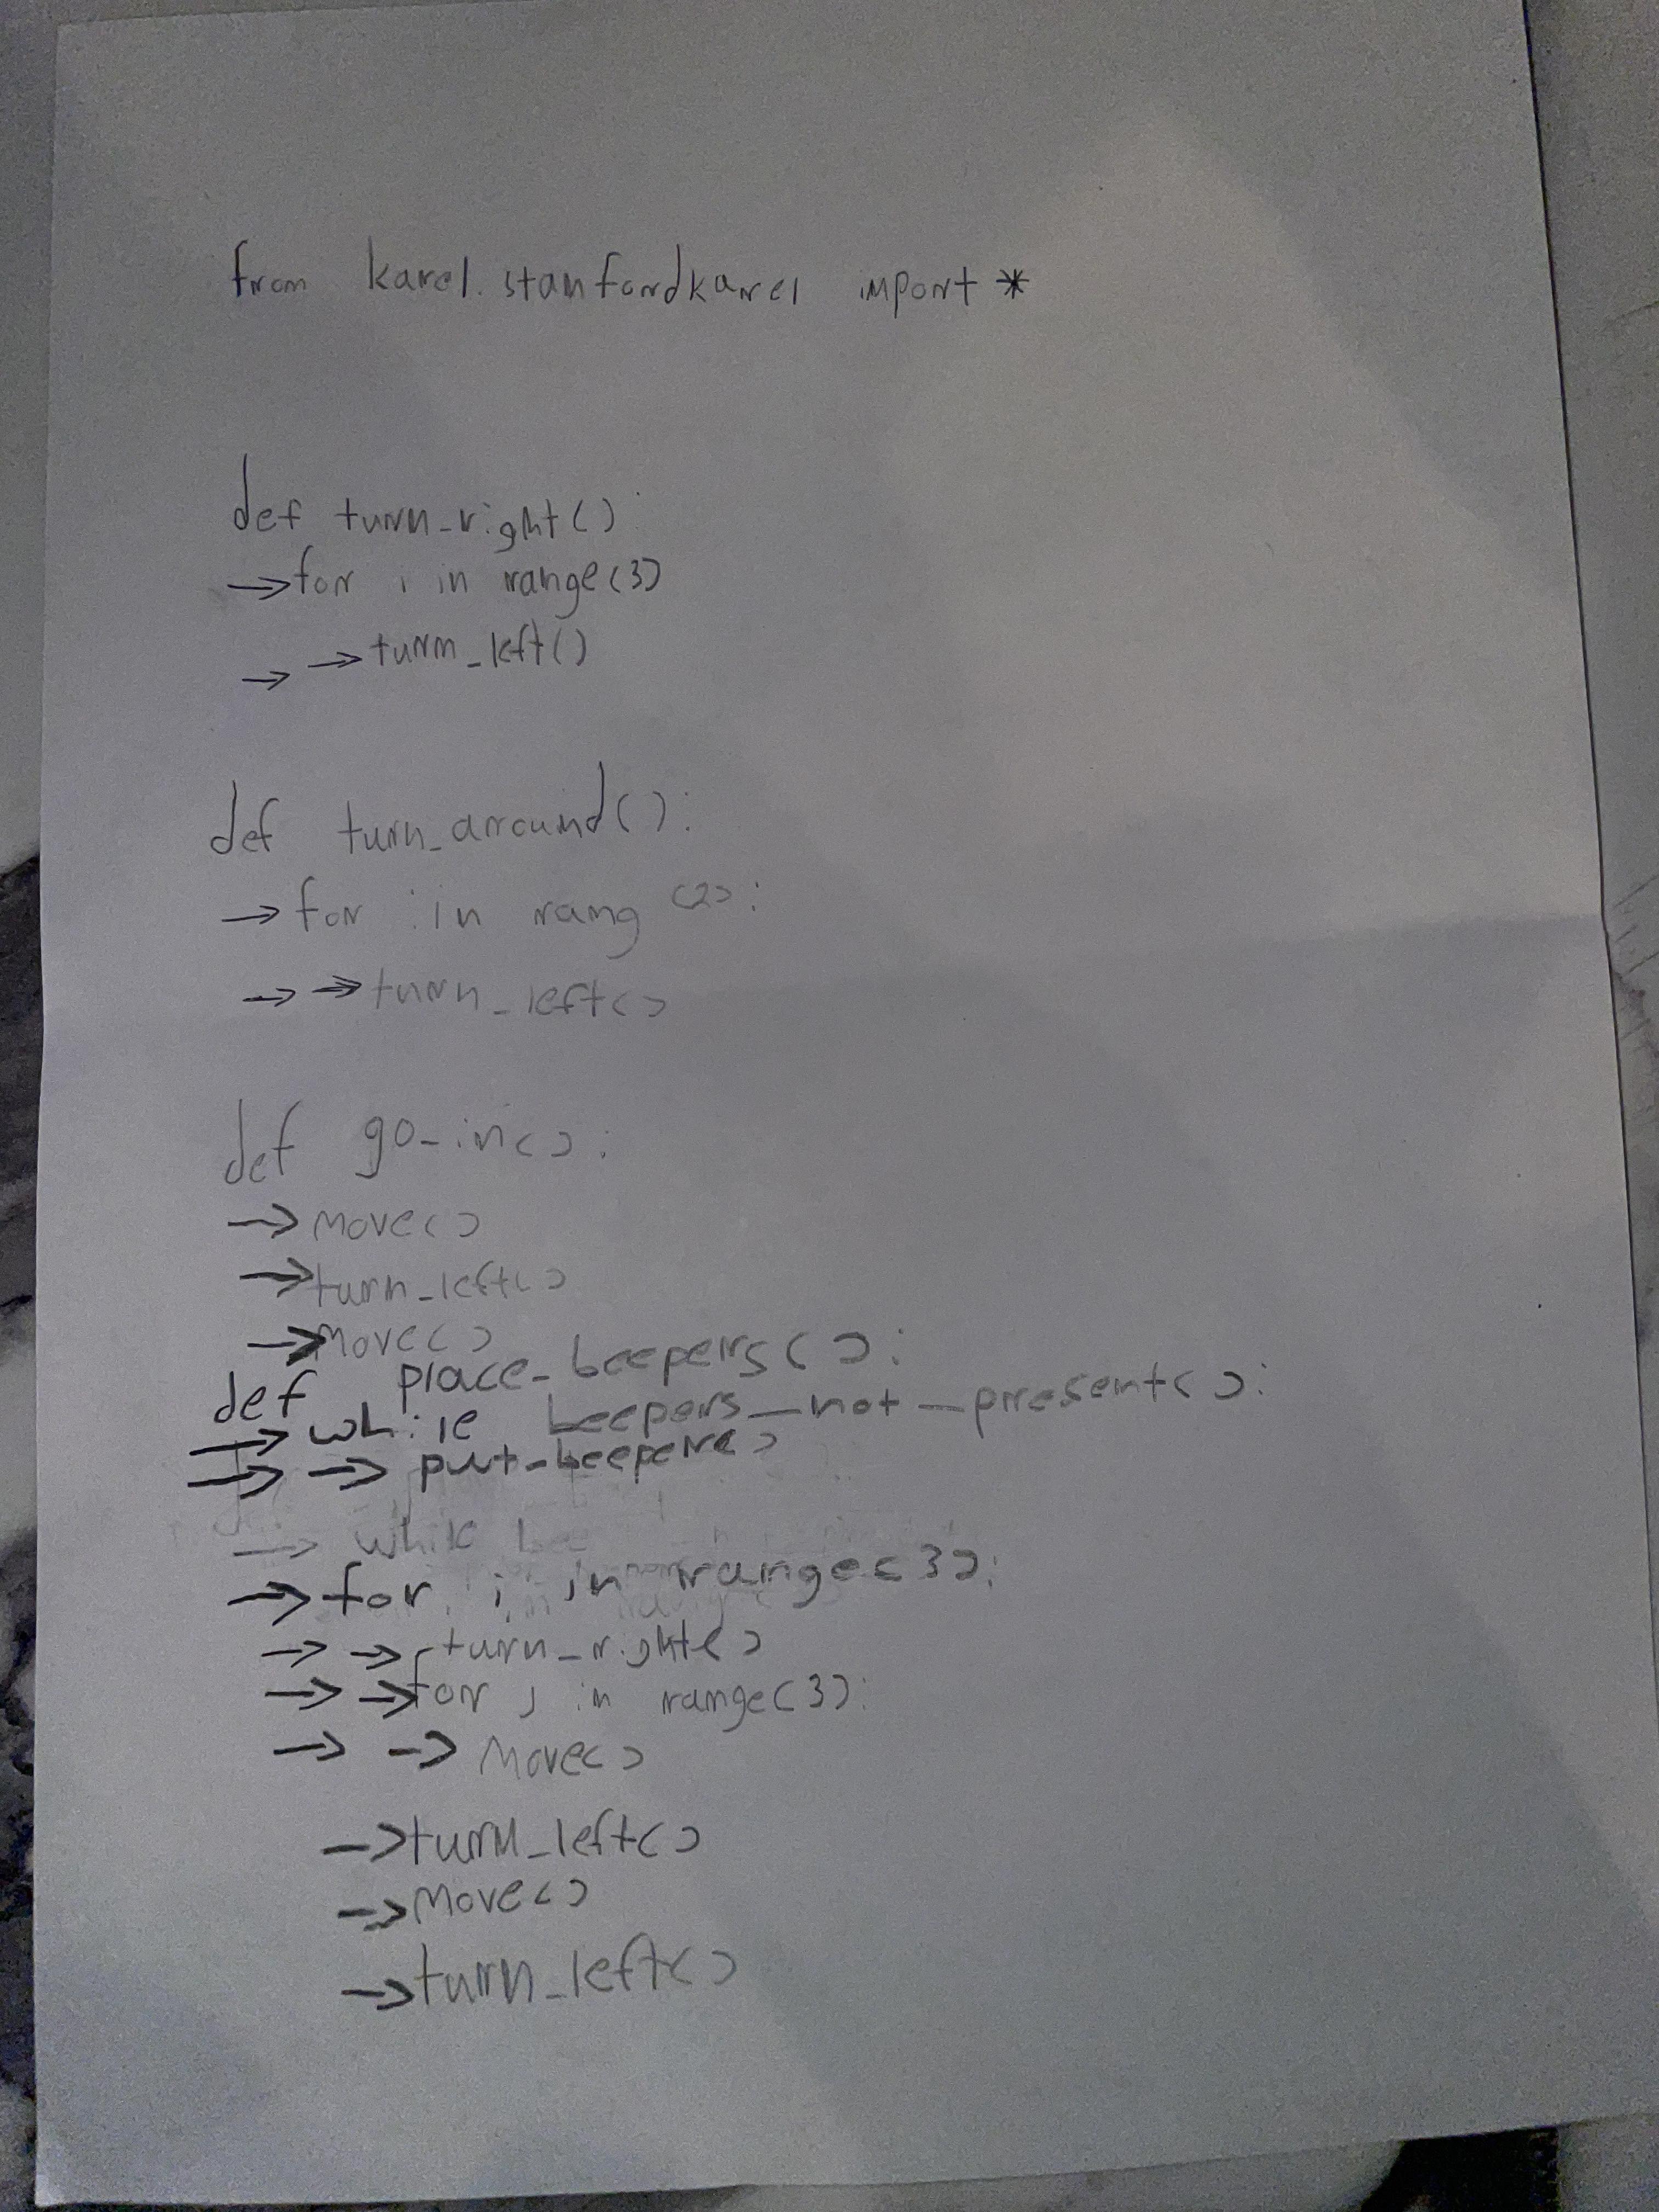 from karel.stanfordkarel import *
def turn_right():
→for i in range(3)
→ →turn_left()
def turn_arround():
→for i in rang (2):
→ →turn_left()
def go_in():
→move()
→turn_left()
→move()
def place_beepers():
→while beepers_not_present():
→ → put_beeper()
→ while be
→for i in range(3):
→ → turn_right()
→ →for j in range(3):
→ → move()
→turn_left()
→move()
→turn_left()